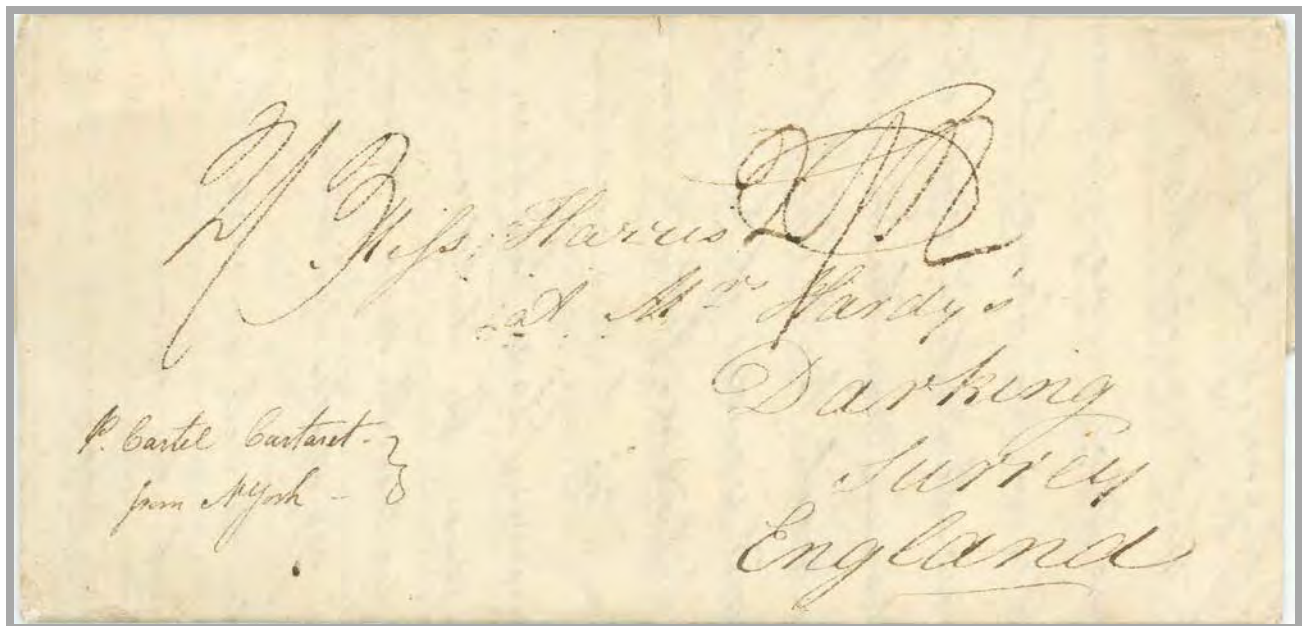 2/
Miss Harris
at Mrs Hardy's
Darking
Surrey
England
P. Cartel Cartaret
from NYork